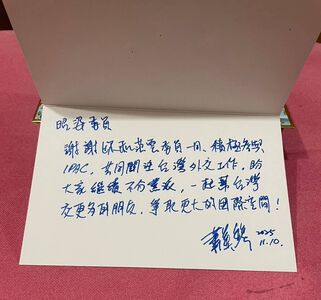 昭姿委員
謝謝妳和范雲委員一同、積極參與
IPAC,共同 台灣外交工作,盼
大家繼續不分黨派,一起幫台灣
交更多的朋友,爭取更大的國際空間!
蕭美琴 2025
11.10.